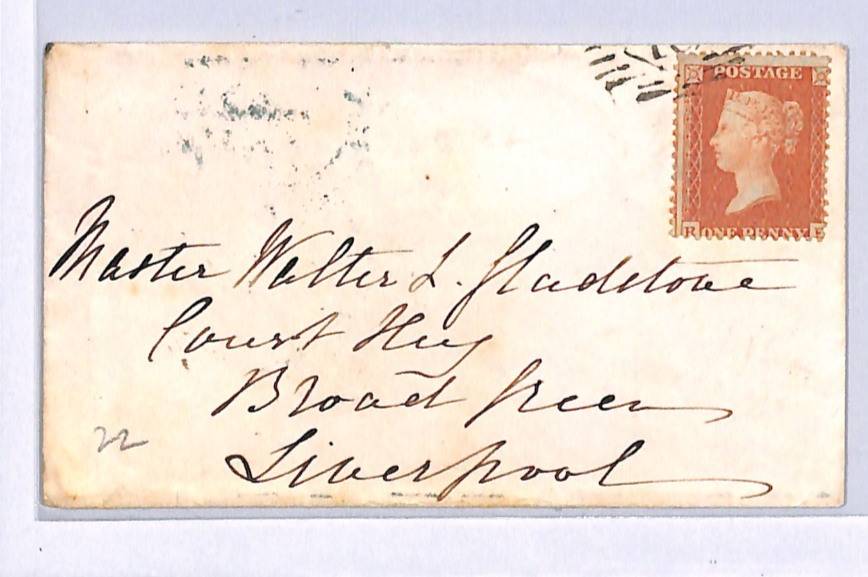 POSTAGE
R ONE PENNY E
Master Walter L. Gladstone
Court Hey
Broad Green
Liverpool
22